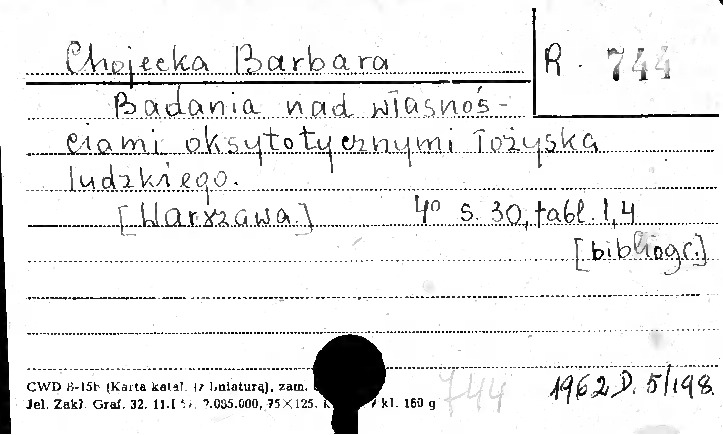 Chojecka Barbara
R. 744
Badania nad własnoś-
ciami oksytotycznymi łożyska
ludzkiego.
[Warszawa.] 4° s. 30, tabl. 1,4
[bibliogr.]
CWD B-15b (Karta katal. (z liniaturą), zam.
Jel. Zakł. Graf. 32. 75×125. kl. 160 g
744
1962 D. 5/198.